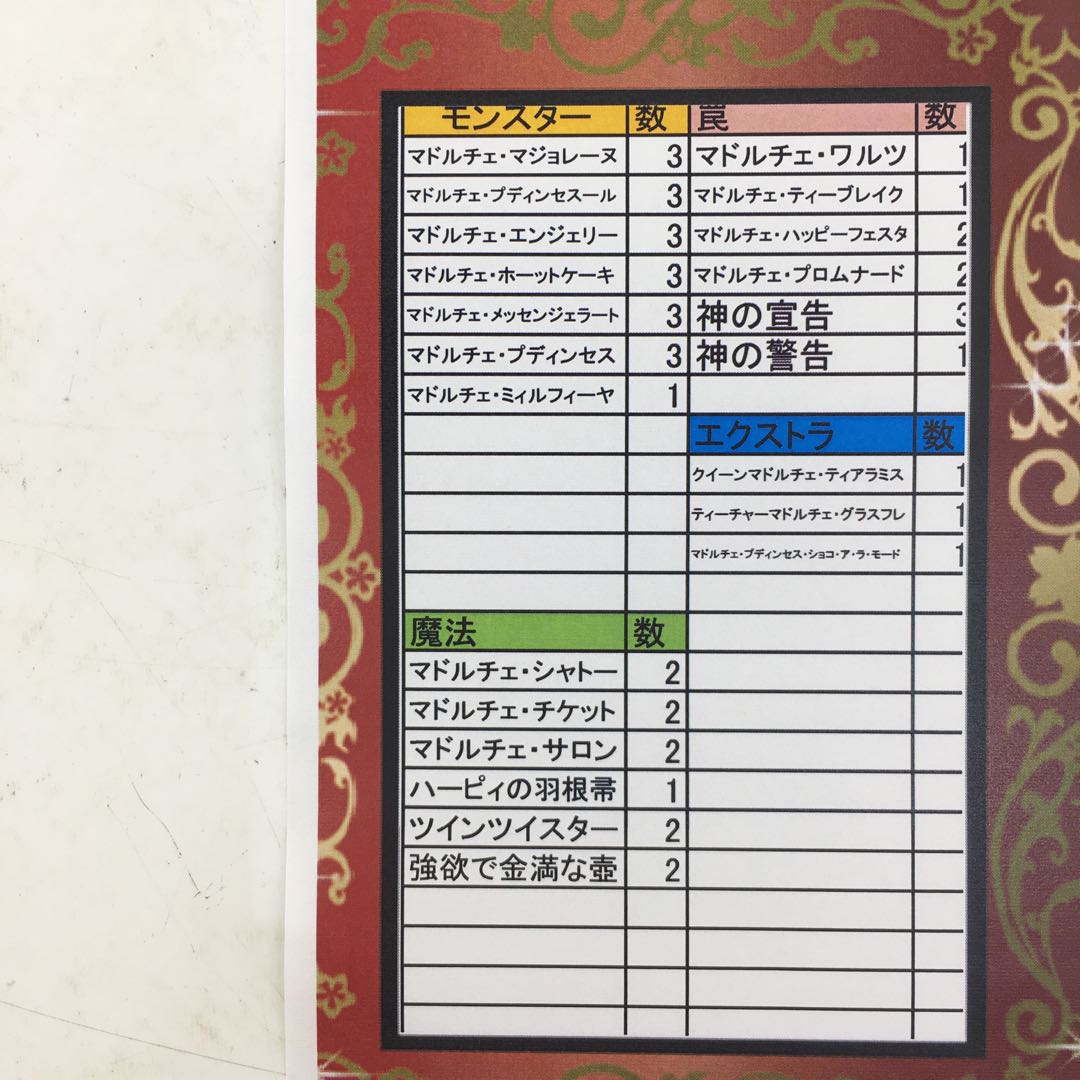 モンスター 数
マドルチェ・マジョレーヌ 3
マドルチェ・プディンセスール 3
マドルチェ・エンジェリー 3
マドルチェ・ホーットケーキ 3
マドルチェ・メッセンジェラート 3
マドルチェ・プディンセス 3
マドルチェ・ミィルフィーヤ 1
魔法 数
マドルチェ・シャトー 2
マドルチェ・チケット 2
マドルチェ・サロン 2
ハーピィの羽根帚 1
ツインツイスター 2
強欲で金満な壺 2
罠 数
マドルチェ・ワルツ 1
マドルチェ・ティーブレイク 1
マドルチェ・ハッピーフェスタ 2
マドルチェ・プロムナード 2
神の宣告 3
神の警告 1
エクストラ 数
クイーンマドルチェ・ティアラミス 1
ティーチャーマドルチェ・グラスフレ 1
マドルチェ・プディンセス・ショコ・ア・ラ・モード 1